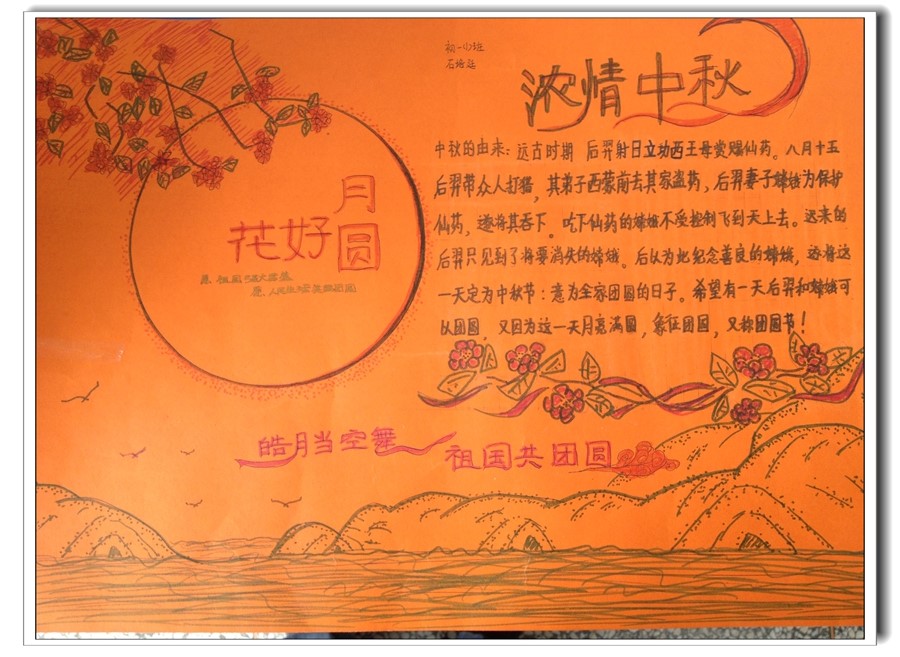 初一(1)班
浓情中秋
中秋的由来：远古时期 后羿射日立功西王母赏赐仙药。八月十五
后羿带众人打猎，其弟子西蒙前去其家盗药，后羿妻子嫦娥为保护
仙药，遂将其吞下。吃下仙药的嫦娥不受控制飞到天上去。迟来的
后羿只见到了将要消失的嫦娥。后以为妃纪念善良的嫦娥，还将这
一天定为中秋节：意为全家团圆的日子。希望有一天后羿和嫦娥可
以团圆，又因为这一天月亮满圆，象征团圆，又称团圆节！
花好月圆
皓月当空舞
祖国共团圆